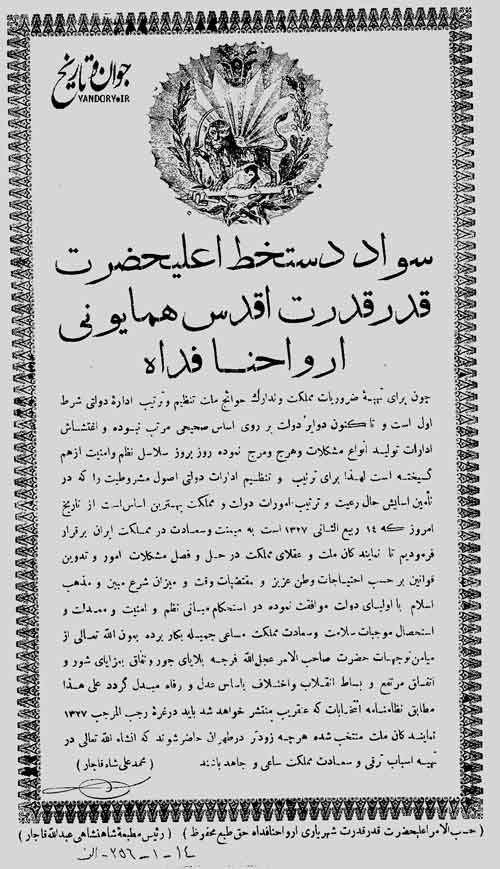 جوان و تاریخ
VANDORY.IR
سواد دستخط اعلیحضرت
قدر قدرت اقدس همایونی
ارواحنا فداه
چون برای تهیهٔ ضروریات مملکت و تدارك حوائج ملت تنظیم و ترتیب ادارهٔ دولتی شرط
اول است و تا کنون دوایر دولت بر روی اساس صحیحی مرتب نبوده و اغتشاش
ادارات تولید انواع مشکلات و هرج و مرج نموده روز بروز سلاسل نظم و امنیت از هم
گسیخته است لهذا برای ترتیب و تنظیم ادارات دولتی اصول مشروطیت را که در
تأمین اسایش حال رعیت و ترتیب امورات دولت و مملکت بهترین اساس است از تاریخ
امروز که ١٤ ربیع الثانی ١٣٢٧ است به میمنت و سعادت در مملکت ایران برقرار
فرمودیم تا نمایندکان ملت و عقلای مملکت در حل و فصل مشکلات امور و تدوین
قوانین بر حسب احتیاجات وطن عزیز و مقتضیات وقت و میزان شرع مبین و مذهب
اسلام با اولیای دولت موافقت نموده در استحکام مبانی نظم و امنیت و معدلت و
استحصال موجبات سلامت و سعادت مملکت مساعی جمیله بکار برده بعون الله تعالی از
میامن توجهات حضرت صاحب الامر عجل الله فرجه بلایای جور و نفاق بمزایای شور و
اتفاق مرتفع و بساط انقلاب و اختلاف باساس عدل و رفاه مبدل گردد علی هذا
مطابق نظامنامه انتخابات که عنقریب منتشر خواهد شد باید در غرهٔ رجب المرجب ١٣٢٧
نمایندکان ملت منتخب شده هر چه زودتر در طهران حاضر شوند که انشاء الله تعالی در
تهیه اسباب ترقی و سعادت مملکت ساعی و جاهد باشند ( محمد علی شاه قاجار )
( حسب الامر اعلیحضرت قدر قدرت شهریاری ارواحنا فداه حق طبع محفوظ ) ( رئیس مطبعهٔ شاهنشاهی عبدالله قاجار )
١٤ - ١ - ٢٥٦ - الن